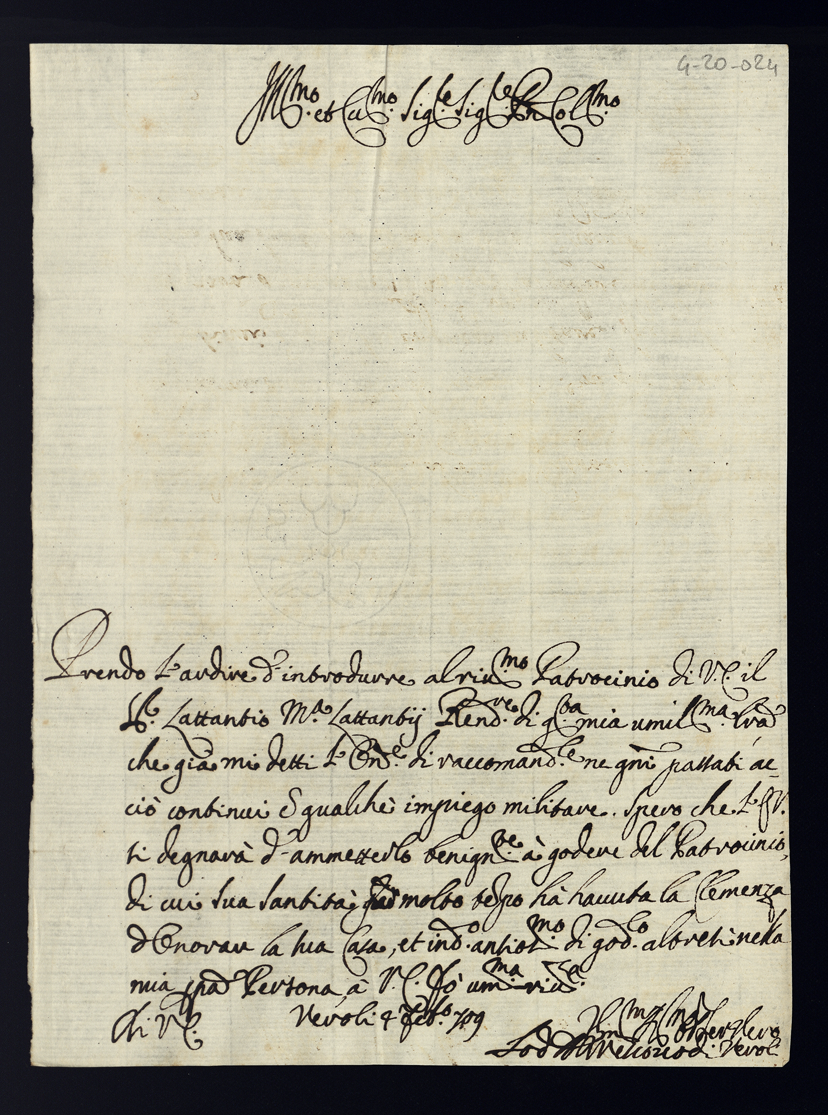 4-20-024
Ill.mo et Ecc.mo Sig.re Sig.re Pne Col.mo
Prendo l'ardire d'introdurre al riu.mo Patrocinio di V.E. il
Lattantio M.a Lattantij Rend.re di q.ta mia umil.ma
che già mi detti l' di raccomand.le ne gni passati ac-
ciò continui qualche impiego militare. Spero che l'E.V.
si degnarà d'ammetterlo benign.te à godere del Patrocinio,
di cui Sua Santità molto tempo hà havuta la Clemenza
d'Onorar la sua Casa, et di god.lo altresi nella
mia Persona, à V.E. fò um.ma riu.za
Di V.E. Veroli 4 Feb.o 709
di Veroli